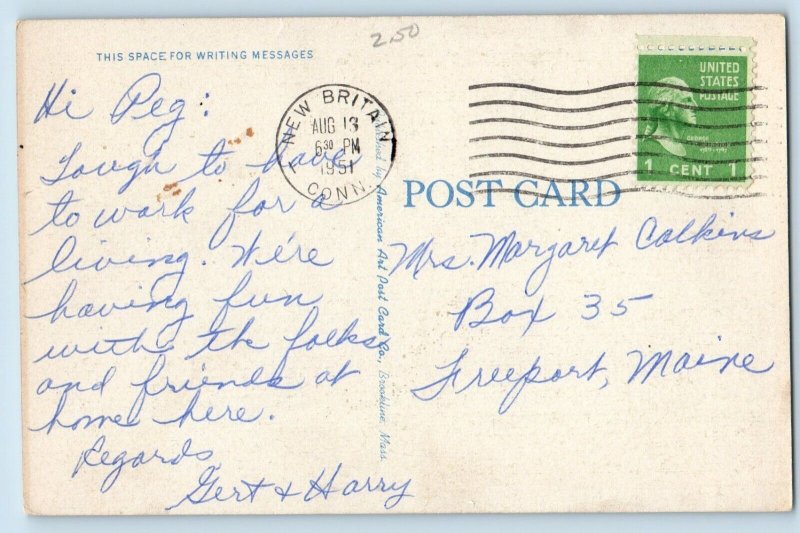 250
THIS SPACE FOR WRITING MESSAGES
Hi Peg:
Tough to have
to work for a
living. We're
having fun
with the folks
and friends at
home here.
Regards
Gert & Harry
NEW BRITAIN
AUG 13
6 30 PM
1951
CONN.
UNITED
STATES
POSTAGE
1 CENT 1
POST CARD
Mrs. Margaret Calkins
Box 35
Freeport, Maine
by American Art Post Card Co., Brookline, Mass.